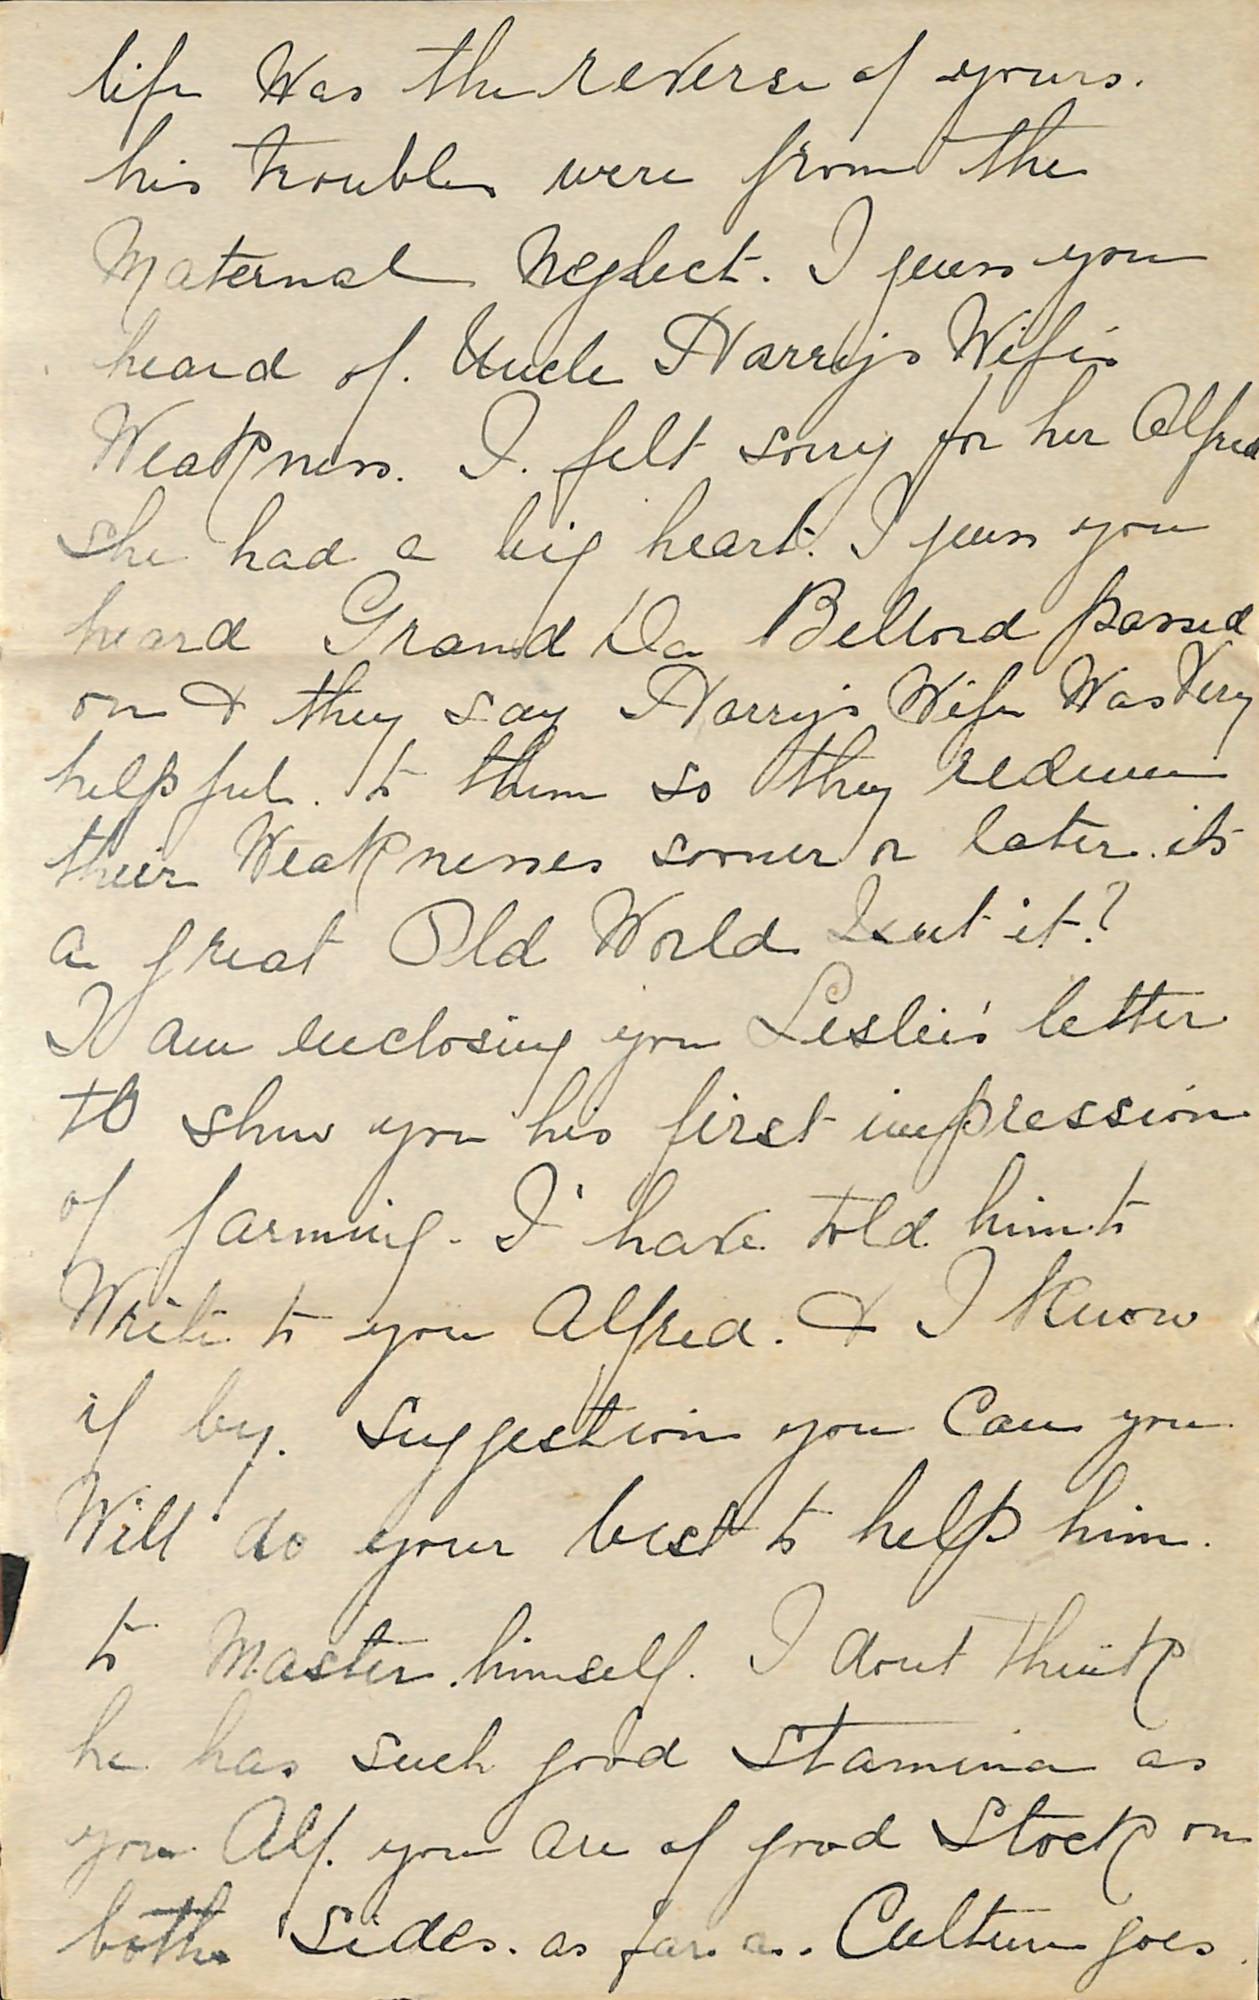 life Was the reverse of yours.
his troubles were from the
Maternal Neglect. I guess you
heard of. Uncle Harrys Wife's
Weakness. I. felt sorry for her Alfred
she had a big heart. I guess you
heard Grand Da Bellord passed
on & they say Harry's Wife Was Very
helpful. to them so they redeem
their Weaknesses sooner or later. its
a great Old World Isnt it?
I am enclosing you Leslie's letter
to show you his first impression
of farming. I have told him to
Write to you Alfred. & I Know
if by. Suggestion you Can you
Will do your best to help him.
to Master himself. I dont think
he has such good Stamina as
you Alf. you are of good Stock on
both Sides. as far as. Culture goes.